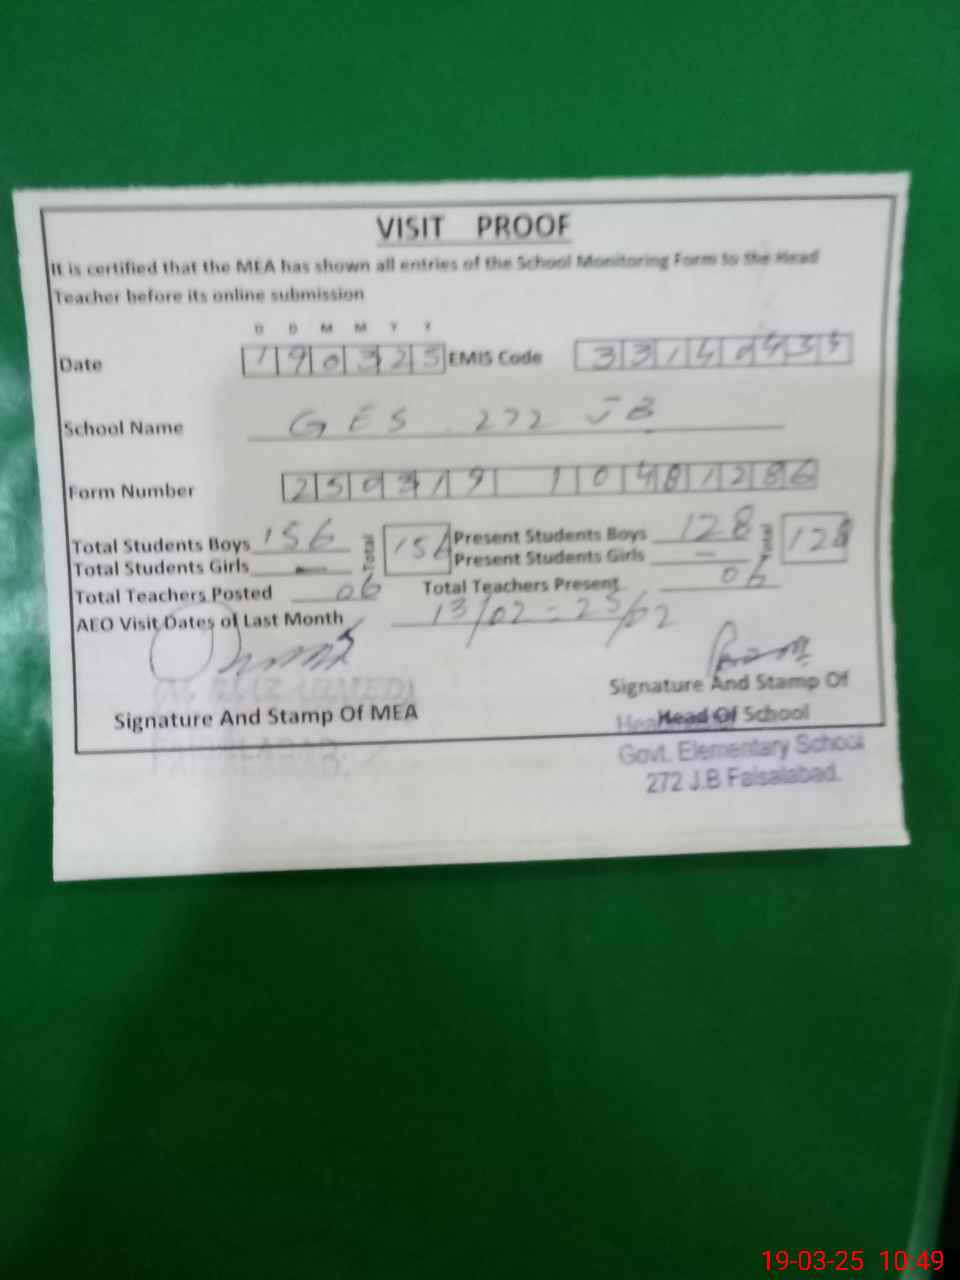 VISIT PROOF
It is certified that the MEA has shown all entries of the School Monitoring Form to the Head
Teacher before its online submission
D D M M Y Y
Date 190325 EMIS Code
School Name GES 272 JB
Form Number 250319 10481286
Total Students Boys 156 Total 156 Present Students Boys 128 Total 128
Total Students Girls — Present Students Girls —
Total Teachers Posted 06 Total Teachers Present 06
AEO Visit Dates of Last Month 13/02 - 25/02
Signature And Stamp Of MEA
Signature And Stamp Of
Head Of School
Govt. Elementary School
272 J.B Faisalabad.
19-03-25 10:49